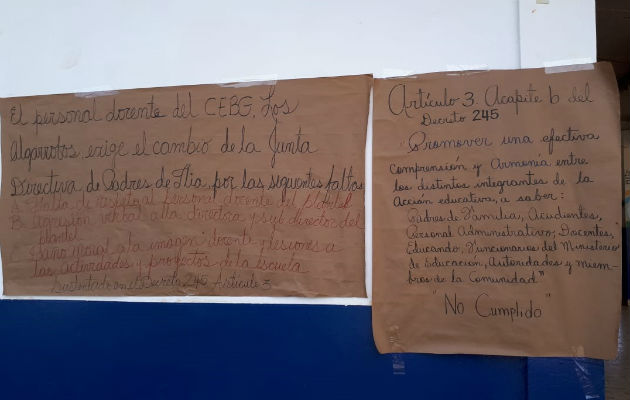 El personal docente del CEBG. Los
Algarrotos, exige el cambio de la Junta
Directiva de Padres de Flia, por las siguientes faltas
A- Falta de respeto al personal docente del plantel
B- Agresión verbal a la directora y sub director del
plantel
C- Daño moral a la imagen docente y lesiones a
las actividades y proyectos de la escuela
Sustentado en el Decreto 245 Artículo 3
Artículo 3. Acapite b del
Decreto 245
"Promover una efectiva
comprensión y Armonía entre
los distintos integrantes de la
Acción educativa, a saber:
Padres de Familia, Acudientes,
Personal Administrativo, Docentes,
Educando, Funcionarios del Ministerio
de Educación, Autoridades y miem-
bros de la Comunidad"
"No Cumplido"